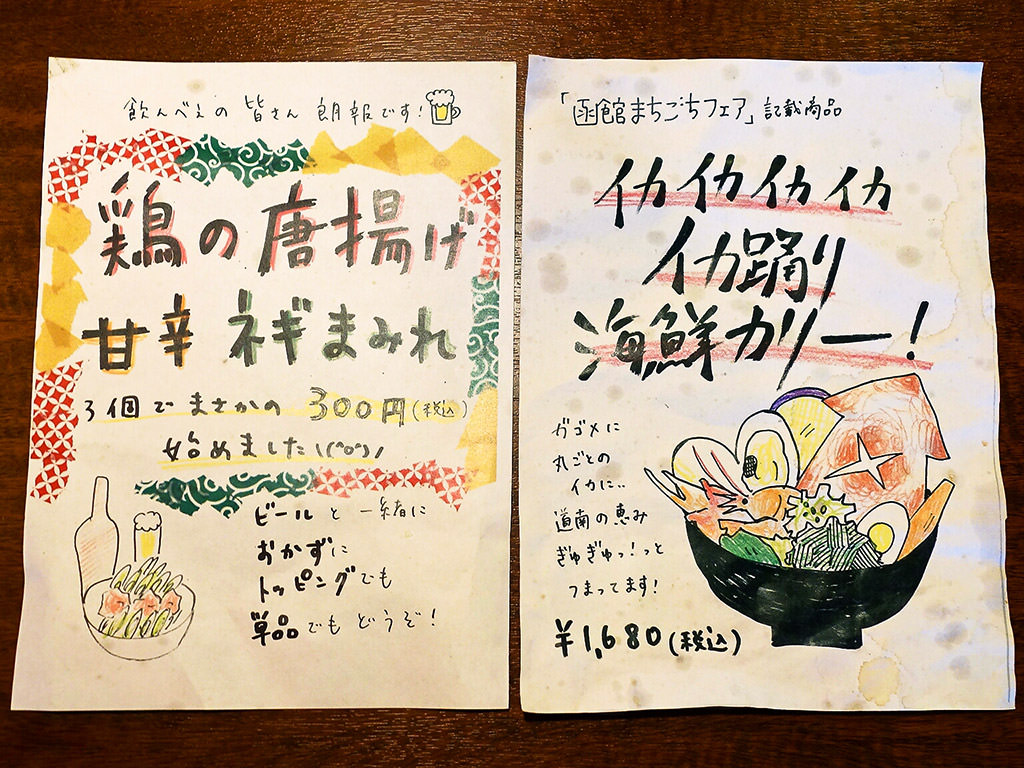 飲んべえの皆さん 朗報です!
鶏の唐揚げ
甘辛ネギまみれ
3個でまさかの 300円(税込)
始めました\(^o^)/
ビールと一緒に
おかずに
トッピングでも
単品でもどうぞ!
「函館まちごちフェア」記載商品
イカイカイカイカ
イカ踊り
海鮮カリー!
ガゴメに
丸ごとの
イカに..
道南の恵み
ぎゅぎゅっ!っと
つまってます!
¥1,680(税込)